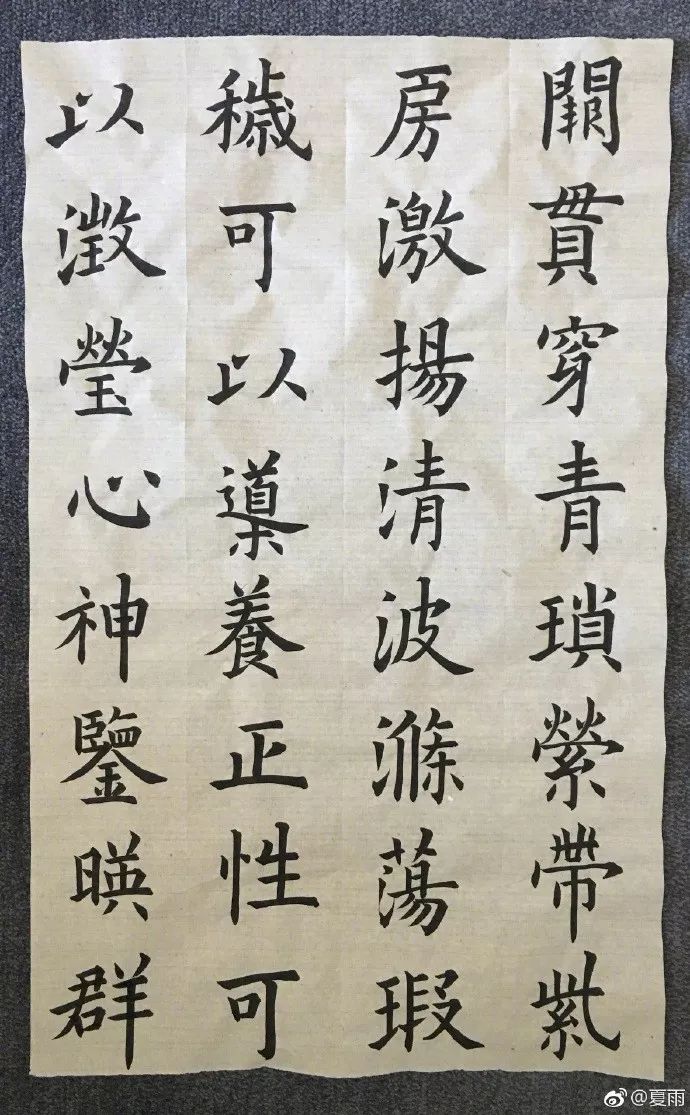 闕貫穿青瑣縈帶紫
房激揚清波滌蕩瑕
穢可以導養正性可
以澂瑩心神鑒暎群
@夏雨